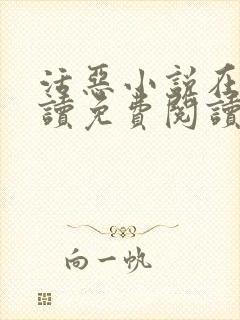 活惡小說在
讀免費閱讀
向一帆